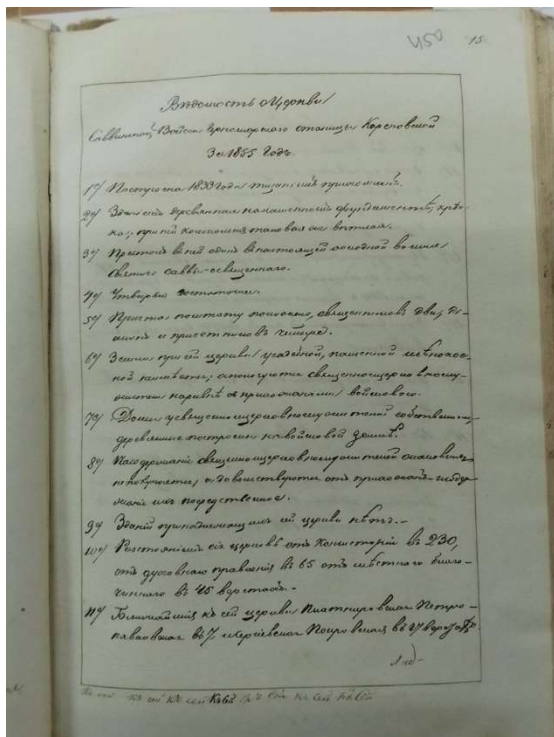 450 15.
Вѣдомость о Церкви
Саввинской Войска Черноморского станицы Кореновской
За 1855 Годъ.
1е/ Построена 1833 года тщаніемъ прихожанъ.
2е/ Зданіемъ деревянная на каменномъ фундаментѣ, крѣп-
ка, при ней колокольня таковая же ветхая.
3е/ Престолъ въ ней одинъ въ настоящей холодной во имя
Святаго Саввы-освященнаго.
4е/ Утварью достаточна.
5е/ Причта по штату положено, священниковъ два, ді-
аконъ и причетниковъ четыре.
6е/ Земли при сей церкви усадебной, пашенной и сѣнокос-
ной священноцерковнослу-
жители наравнѣ съ прихожанами войсковою.
7е/ Домы у священноцерковнослужителей собственные,
деревянные построены на войсковой землѣ.
8е/ На содержаніе священноцерковнослужителей
не получается, а довольствуются отъ прихожанъ
посредственное.
9е/ Зданій принадлежащихъ сей церкви нѣтъ.
10е/ Разстояніемъ сія церковь отъ Консисторіи въ 230,
отъ духовнаго правленія въ 65 отъ мѣстнаго благо-
чиннаго въ 45 верстахъ.
11е/ Ближайшія къ сей церкви Платнировская Петро-
павловская въ 7 и Покровская въ 27 верстахъ
къ сей къ сей